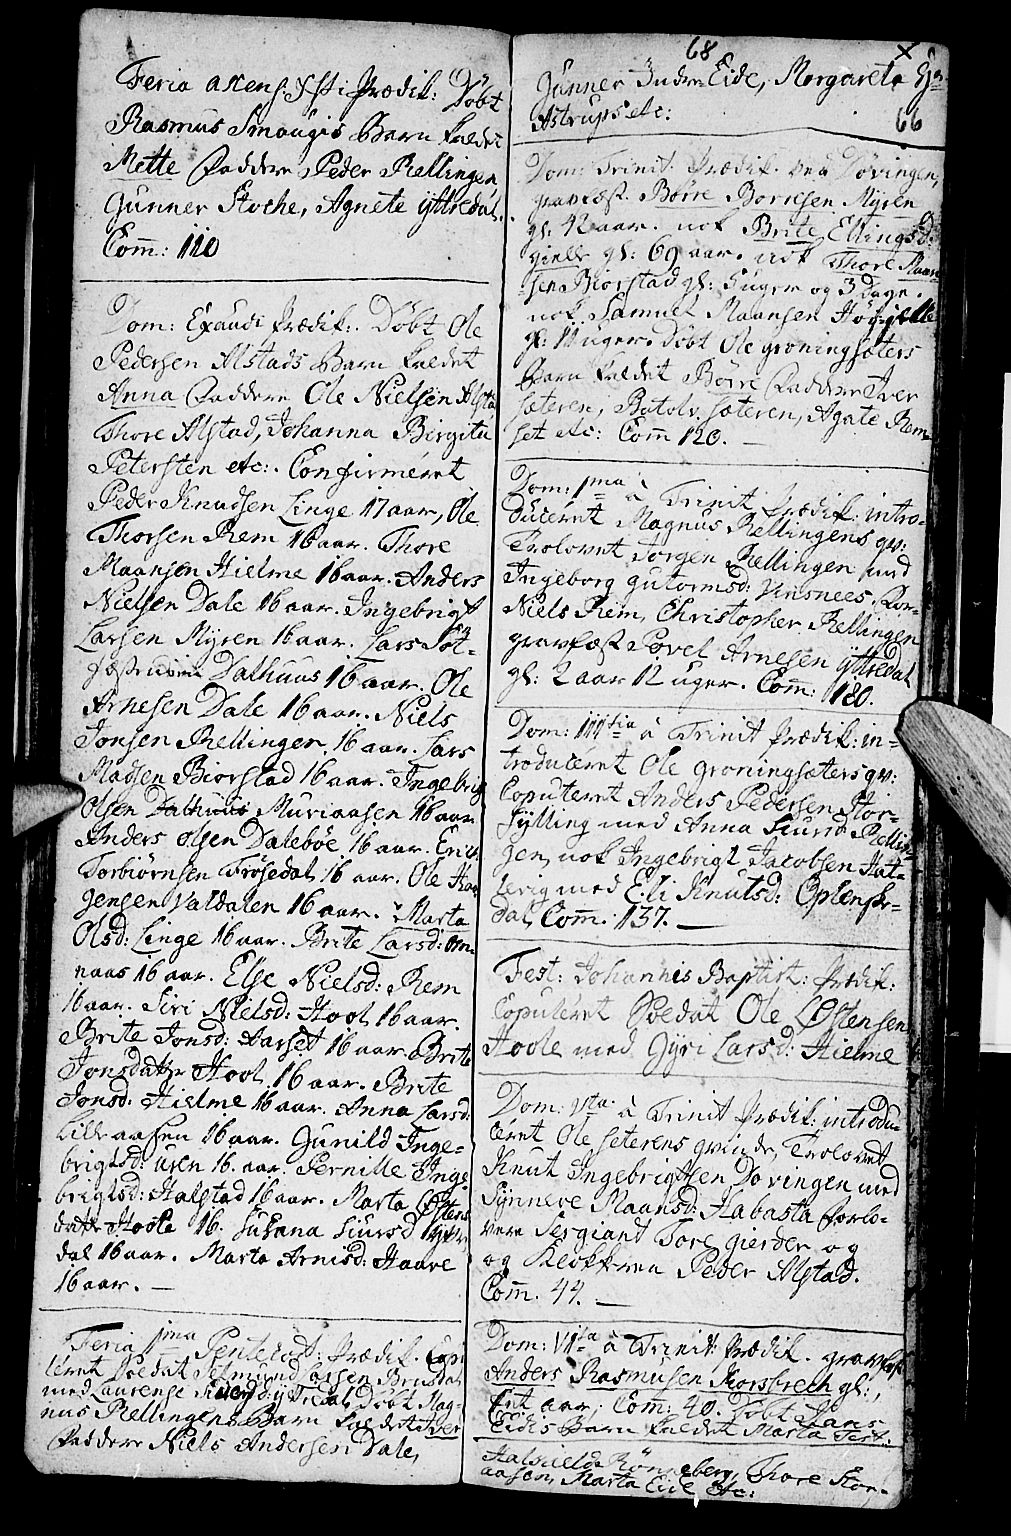 Feria ascens: Xsti Prædik: Døbt
Rasmus Smaugis Barn kaldet
Mette Faddere Peder Rellingen
Gunner Stoche, Agnete Yttredal.
Com̄: 110
Dom: Exaudi Prædik: Døbt Ole
Pedersen Alstads Barn kaldet
Anna Faddere Ole Nielsen Alsta
Thore Alstad, Johanna Birgita
Petersten etc: Confirméret
Peder Knudsen Linge 17 aar, Ole
Thorsen Rem 16 aar. Thore
Maansen Hielme 16 aar. Anders
Nielsen Dale 16 aar. Ingebrigt
Larsen Myren 16 aar. Lars
Dalhuus 16 aar. Ole
Arnesen Dale 16 aar. Niels
Jonsen Rellingen 16 aar. Lars
Madsen Biorstad 16 aar. Ingebrig
Olsen Dalhuus Muriaasen 16 aar
Anders Olsen Dalebøe 16 aar. Erich
Torbiørnsen Frøsedal 16 aar. Ole Haa
gensen Valdalen 16 aar. Marta
Olsd: Linge 16 aar. Brite Larsd: om-
naas 16 aar. Else Nielsd: Rem
16 aar. Siri Nielsd: Hool 16 aar.
Brite Jonsd: Aarset 16 aar Brite
Jonsdatter Hool 16 aar. Brite
Jonsd: Hielme 16 aar. Anna Larsd:
Lilleaasen 16 aar. Gunild Inge-
brigtsd: uren 16. aar. Pernille Inge
brigtsd: Halstad 16 aar. Marta Østens
datter Hoole 16. Susana Siursd Yttre
dal 16 aar. Marta Arnisd: Haave
16 aar. —
Feria 1ma Pentecost: Prædik. Copu
léret Soldat Aamund Larsen Brusdal
med Laurense Yttredal Døbt Mag-
nus Rellingens Barn kaldet Iver
Faddere Niels Andersen Dale,
68 X
Gunner Indre Eide, Margareta
Astrups etc: 66
Dom: Trinit: Prædik. ved Døvingen,
gravfæst Børre Borresen Myren
gl: 42 aar. nok Brite Ellingsd:
gielle gl: 69 aar. nok Thore Maan
sen Biorstad gl: 5 uger og 3 Dage.
nok Samuel Maansen Høgielle
gl: 11 uger. Døbt Ole groningsæters
Barn kaldet Børre Faddere Iver
sæteren, Botolv sæteren, Agate Rem-
set etc: Com̄ 120. —
Dom: 1ma à Trinit Prædik: intro-
ducéret Magnus Rellingens qv:
Trolovet Jørgen Rellingen med
Ingeborg gutormsd: Vinsnees, For-
Niels Rem, Christopher Rellingen
gravfæst Povel Arnesen Yttredal
gl: 2 aar 12 uger. Com̄: 180.
Dom: IIItia à Trinit Prædik: in-
troducéret Ole groningsæters qv:
Copuléret Anders Pedersen Stor-
fylling med Anna Siursd Rellin-
gen, nok Ingebrigt Jacobsen Hat-
levig med Eli Knutsd: Oplensk-
dal Com̄: 137. —
Fest: Johannis Baptist: Prædik:
Copuléret Soldat Ole Østensen
Hoole med Gyri Larsd: Hielme
Dom: Vta à Trinit Prædik: introdu-
céret Ole seterens qvinde, Trolovet
Knut Ingebrigtsen Døvingen med
Synneve Maansd: Habasta Forlo-
vere Sergiant Tore gierder og
og Klokkeren Peder Alstad.
Com̄. 44. —
Dom: VIta à Trinit: Prædik. gravfæst
Anders Rasmusen Korsbrech gl:
aar. Com: 40. Døbt Hans
Eidis Barn kaldet Marta Test:
Rønneberg, Thore Stor-
aasen, Marta Eide etc: